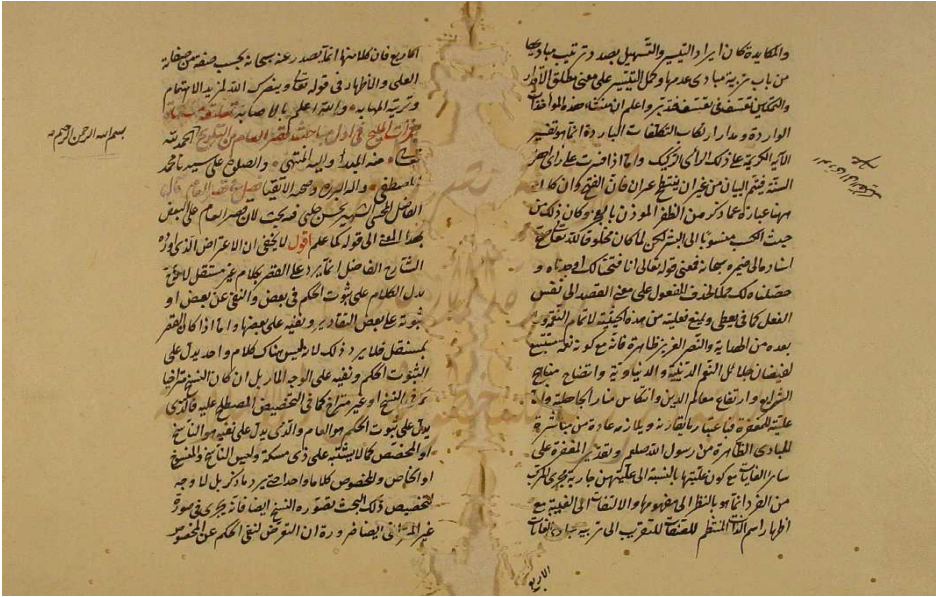 والمكايدة كان ايراد التيسير والتسهيل بصدد ترتيب مبادى
من باب تربية مبادى عدمها وحمل التيسير على معنى مطلق الاقدار
والتمكين تعسف فى تعسف فتدبر واعلم ان منشاء هذه المواخذات
الواردة ومدار ارتكاب التكلفات الباردة انما هو تفسير
الآية الكريمة على ذلك الراى الركيك واما اذا فسرت على راى اهل
السنة فيتم البيان من غير ان ينتطح عنزان فان الفتح وان كان
ههنا عبارة عما ذكر من الظفر المؤذن بالحرب وكان ذلك من
حيث الكسب منسوبا الى البشر لكن لما كان مخلوقا لله تعالى صح
اسناده الى ضميره سبحانه فمعنى قوله تعالى انا فتحنا لك اوجدناه و
حصلناه لك حملا لحذف المفعول على معنى القصد الى نفس
الفعل كما فى يعطى ويمنع فعليته من هذه الحيثية لاتمام النعمة وما
بعده من الهداية والنصر العزيز ظاهرة فانه مع كونه نعمة مستتبع
لفيضان جلائل النعم الدينية والدنياوية وانفتاح مناهج
الشرايع وارتفاع معالم الدين وانتكاس منار الجاهلية واما
عليته للمغفرة فباعتبار ما يقارنه ويلازمه عادة من مباشرة
للمبادى الظاهرة من رسول الله صلعم وتقديم المغفرة على
ساير الغايات مع كون عليتها بالنسبة الى عليتهن جارية مجرى المركب
من الفرد انما هو بالنظر الى مفهومها والالتفات الى الغيبة مع
اظهار اسم الذات المنتظم للصفات للتقريب الى تربية مبادى الغايات
الاربع
الاربع فان كلا منها انما يصدر عنه سبحانه بحسب صفة من صفاته
العلى والاظهار فى قوله تعالى وينصرك الله لمزيد الاهتمام
وتربية المهابة والله اعلم بالاصابة
فى اول مباحث قصر العام من التلويح الحمد لله
منه المبدا واليه المنتهى والصلوة على سيدنا محمد
المصطفى واله البررة وصحبه الاتقيا قال
الفاضل المحشى الشهير بحسن چلبى فيه بحث لان قصر العام على البعض
بهذا المعنى الى قوله كما علم اقول لا يخفى ان الاعتراض الذى اورده
الشارح الفاضل انما يرد على القصر بكلام غير مستقل
يدل الكلام على ثبوت الحكم فى بعض والنفى عن بعض او
ثبوته على بعض التقادير ونفيه على بعضها واما اذا كان القصر
بمستقل فلا يرد ذلك لانه ليس هناك كلام واحد يدل على
الثبوت الحكم ونفيه على الوجه المار بل ان كان النسخ متراخيا
كما فى النسخ او غير متراخ كما فى التخصيص المصطلح عليه فالذى
يدل على ثبوت الحكم هو العام والذى يدل على نفيه هو الناسخ
او المخصص كما لا يشتبه على ذى مسكة وليس الناسخ والمنسوخ
او الخاص والمخصوص كلاما واحدا حتى يرد ما ذكر بل لا وجه
لتخصيص ذلك البحث بصورة النسخ ايضا فانه يجرى فى صورة
غير المتراخى ايضا ضرورة ان التعرض لنفى الحكم عن المخصوص
بسم الله الرحمن الرحيم